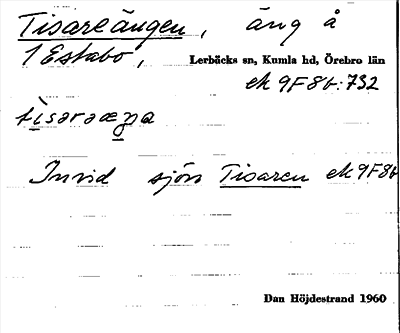 Tisareängen, äng å
1 Estabo, Lerbäcks sn, Kumla hd, Örebro län
ek 9F8b:732
tisaraæŋa
Invid sjön Tisaren ek 9F8b
Dan Höjdestrand 1960